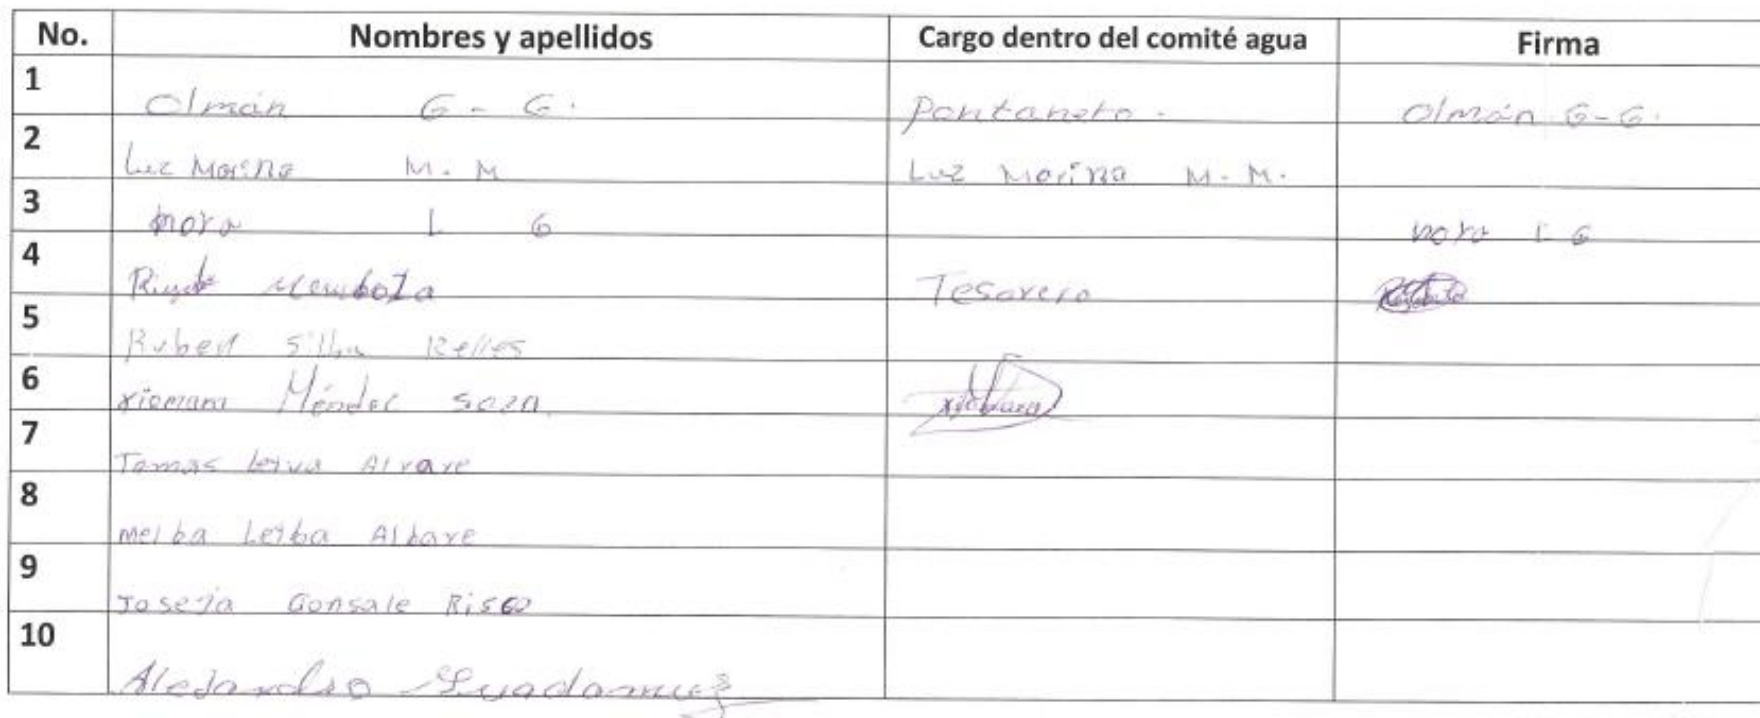 No. Nombres y apellidos Cargo dentro del comité agua Firma
1 Olmán G - G. Pontanero. Olmán G-G.
2 Luz Marina M. M Luz Marina M. M.
3 nora L G nora L G
4 Mendoza Tesorero
5 Ruben Silba
6 Xiomara Méndec Xiomara
7 Tomas Leiva Alvare
8 melba Leiba Albare
9 Joseja Gonsale Risco
10 Alejandro Guadamuz